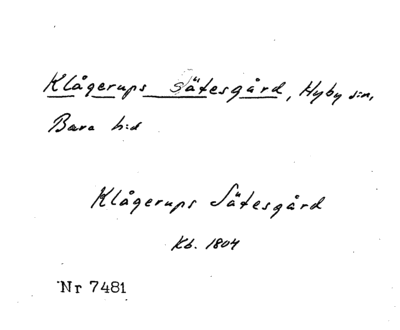 Klågerups Sätesgård, Hyby s:n,
Bara h:d
Klågerups Sätesgård
Kb. 1804
Nr 7481